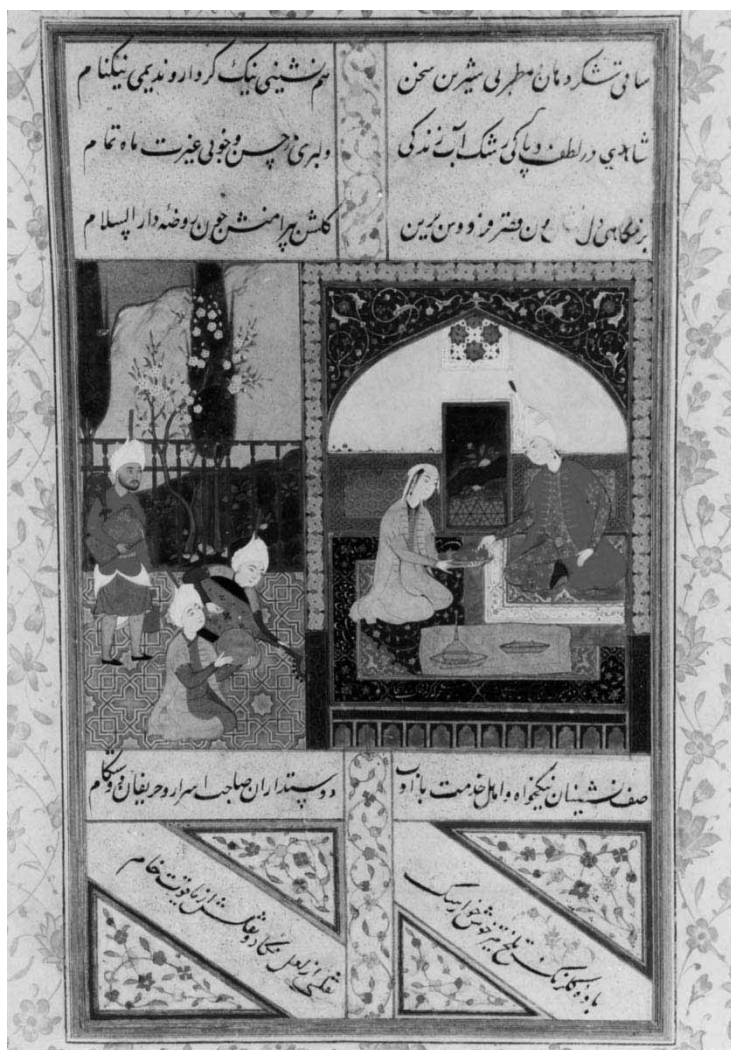 ساقی شکر دهان مطربی شیرین سخن
هم نشینی نیک کردار و ندیمی نیکنام
شاهدی در لطف و پاکی رشک آب زندگی
دلبری در حسن و خوبی غیرت ماه تمام
بزمگاهی دل نشان چون قصر فردوس برین
کلشن پیرامنش چون روضه دار السلام
صف نشینان نیکخواه و اهل خدمت با ادب
دوستداران صاحب اسرار و حریفان دوستکام
باده کلرنک تلخ تیز خوش خوار سبک
نقلی از لعل نکار و نقلش از یاقوت خام